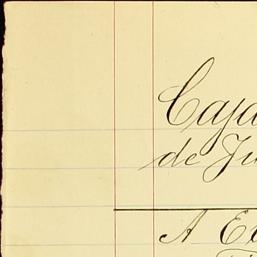 Caja
de Ju
A E